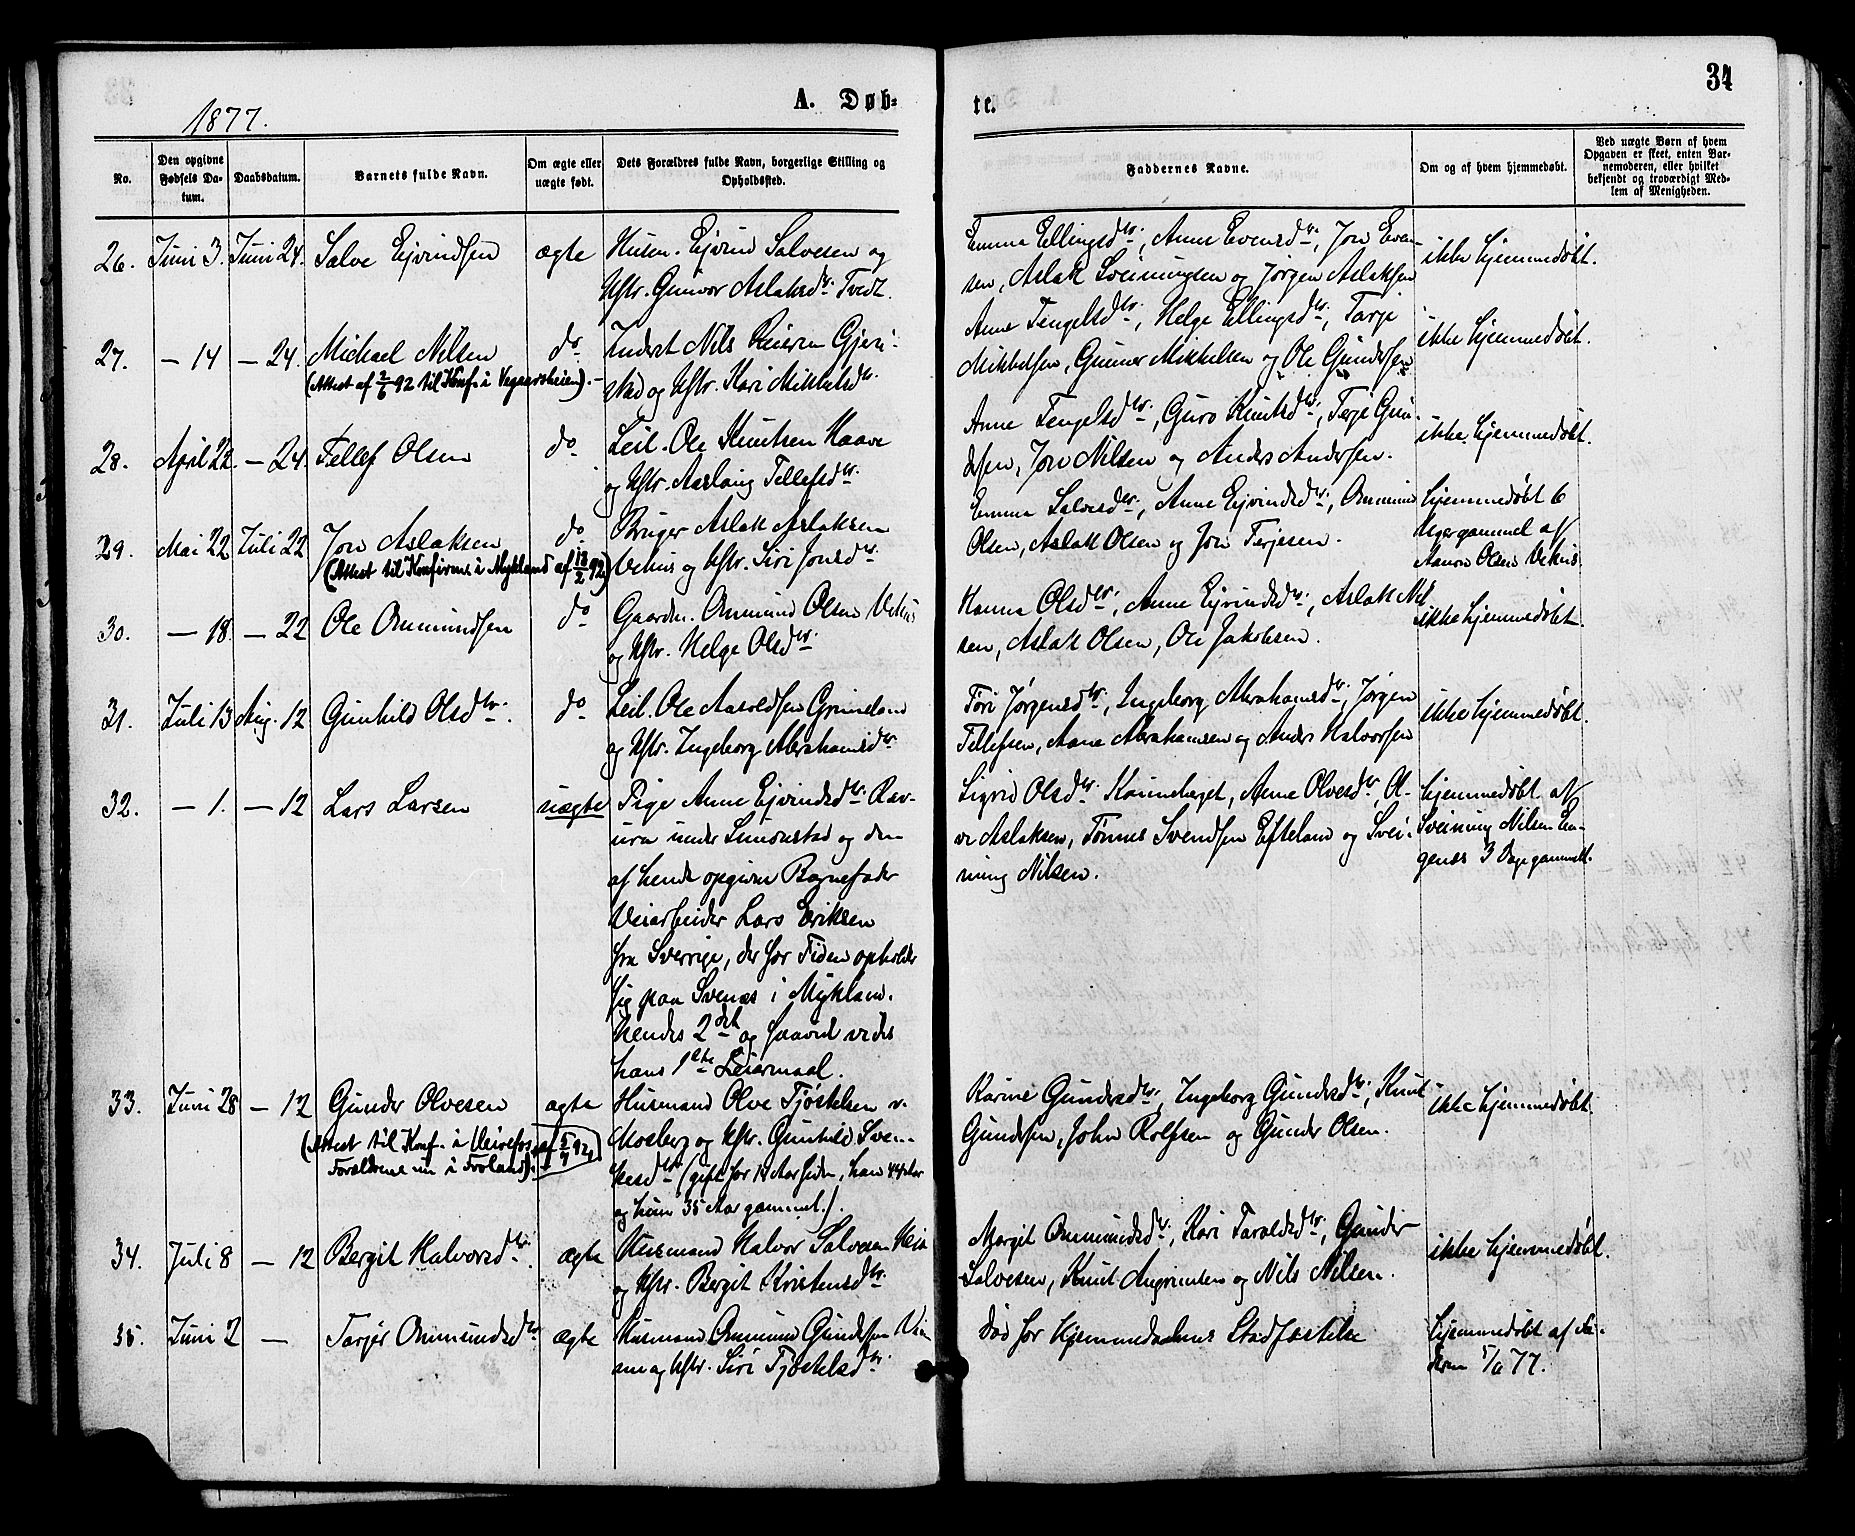 34
1877.
A. Døb-
te.
No.
Den opgivne Fødsels Da-tum.
Daabsdatum.
Barnets fulde Navn.
Om ægte eller uægte født.
Dets Forældres fulde Navn, borgerlige Stilling og Opholdssted.
Faddernes Navne.
Om og af hvem hjemmedøbt.
Ved uægte Børn af hvem Opgaven er skeet, enten Bar-nemoderen, eller hvilket bekjendt og troværdigt Med-lem af Menigheden.
26. Juni 3. Juni 24. Salve Ejvindsen ægte
Husm. Ejvind Salvesen og
Hstr. Gunvor Aslaksdtr. Tvedt.
Emma Ellingsdtr., Anne Evensdtr., Jon Even-
sen, Aslak Sveinungsen og Jørgen Aslaksen
ikke hjemmedøbt.
27. — 14 — 24. Michael Nilsen do
(Attest af 2/6 92 til Konf. i Vegaarsheien).
Inderst Nils Gjeri-
stad og Hstr. Kari Mikkelsdtr.
Anne Tengelsdtr., Helge Ellingsdtr., Tarje
Mikkelsen, Gunner Mikkelsen og Ole Gundersen
ikke hjemmedøbt.
28. April 22. — 24. Tellef Olsen do
Leil. Ole Knutsen Haave
og Hstr. Aaslaug Tellefsdtr.
Anne Tengelsdtr., Guro Knutsdtr., Terje Gun-
dersen, Jon Nilsen og Anders Andersen.
ikke hjemmedøbt.
29. Mai 22 Juli 22 Jon Aslaksen do
(Attest til Konfirm. i Mykland af 18/2 92)
Bruger Aslak Aslaksen
Vehus og Hstr. Siri Jonsdtr.
Emma Salvesdtr., Anne Ejvindsdtr., Ommund
Olsen, Aslak Olsen og Jon Terjesen.
hjemmedøbt 6
Uger gammel af
Olsen Vehus.
30. — 18. — 22 Ole Ommundsen do
Gaardm. Ommund Olsen Vehus
og Hstr. Helge Olsdtr.
Hanna Olsdtr., Anne Ejvindsdtr., Aslak Nil
sen, Aslak Olsen, Ole Jakobsen.
ikke hjemmedøbt.
31. Juli 13 Aug. 12 Gunhild Olsdtr. do
Leil. Ole Aasoldsen Grimeland
og Hstr. Ingeborg Abrahamsdtr.
Tori Jørgensdtr., Ingeborg Abrahamsdtr., Jørgen
Tellefsen, Aane Abrahamsen og Anders Halvorsen
ikke hjemmedøbt.
32. — 1. — 12 Lars Larsen uægte
Pige Anne Ejvindsdtr. Rav-
ura under Simonstad og den
af hende opgivne Barnefader
Veiarbeider Lars Eriksen
fra Sverrige, der for Tiden opholder
sig paa Svenæs i Mykland.
Hendes 2det og saavidt vides
hans 1ste Leiermaal.
Sigrid Olsdtr. , Anne Olvesdtr., Ol-
ve Aslaksen, Tønnes Svendsen Efteland og Svei-
nung Nilsen.
hjemmedøbt af
Sveinung Nilsen En-
genes 3 Dage gammelt.
33. Juni 28 — 12 Gunder Olvesen ægte
(Attest til Konf. i af 5/7 92,
Forældrene nu i Froland).
Husmand Olve Tjøstelsen v.
Mosberg og Hstr. Gunhild Sven-
kesdtr. (gift for 12 Aar siden, han 44 Aar
og hun 35 Aar gammel.).
Karine Gundersdtr., Ingeborg Gundersdtr., Knut
Gundersen, John Rolfsen og Gunder Olsen.
ikke hjemmedøbt.
34. Juli 8 — 12 Bergit Halvorsdtr. ægte
Husmand Halvor Salvesen Hei
og Hstr. Bergit Kristensdtr.
Margit Ommundsdtr., Kari Taraldsdtr., Gunder
Salvesen, Knut og Nils Nilsen.
ikke hjemmedøbt.
35. Juni 2 — Tarjer Ommundsdtr. ægte
Husmand Ommund Gundersen
og Hstr. Siri Tjøstelsdtr.
død før Hjemmedaabens Stadfæstelse
hjemmedøbt af Fa-
deren 5/6 77.